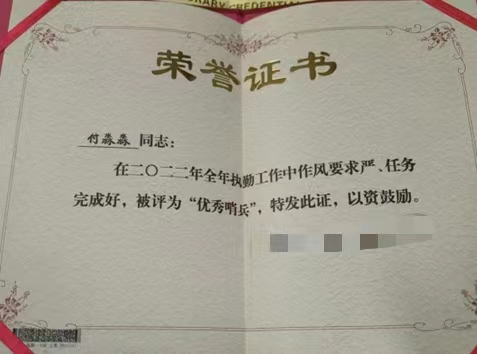 RARY CREDENTIAL
荣誉证书
付淼淼同志：
在二〇二二年全年执勤工作中作风要求严、任务
完成好，被评为“优秀哨兵”，特发此证，以资鼓励。